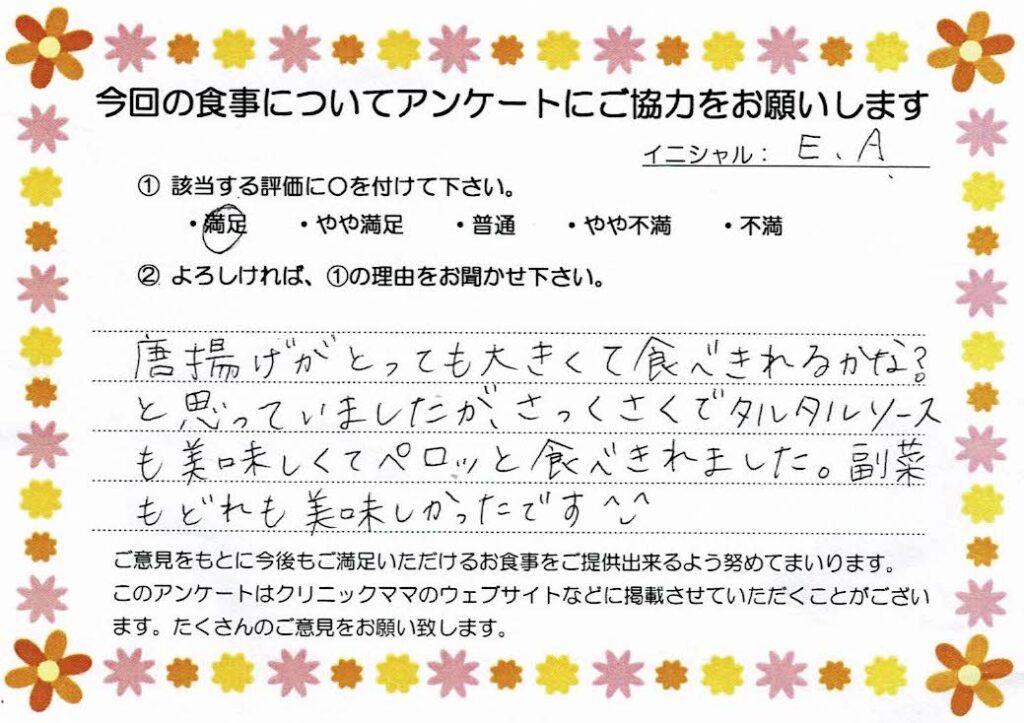 今回の食事についてアンケートにご協力をお願いします
イニシャル： E、A
① 該当する評価に〇を付けて下さい。
・満足 ・やや満足 ・普通 ・やや不満 ・不満
② よろしければ、①の理由をお聞かせ下さい。
唐揚げがとっても大きくて食べきれるかな？
と思っていましたが、さっくさくでタルタルソース
も美味しくてペロッと食べきれました。副菜
もどれも美味しかったです^◡^
ご意見をもとに今後もご満足いただけるお食事をご提供出来るよう努めてまいります。
このアンケートはクリニックママのウェブサイトなどに掲載させていただくことがござい
ます。たくさんのご意見をお願い致します。